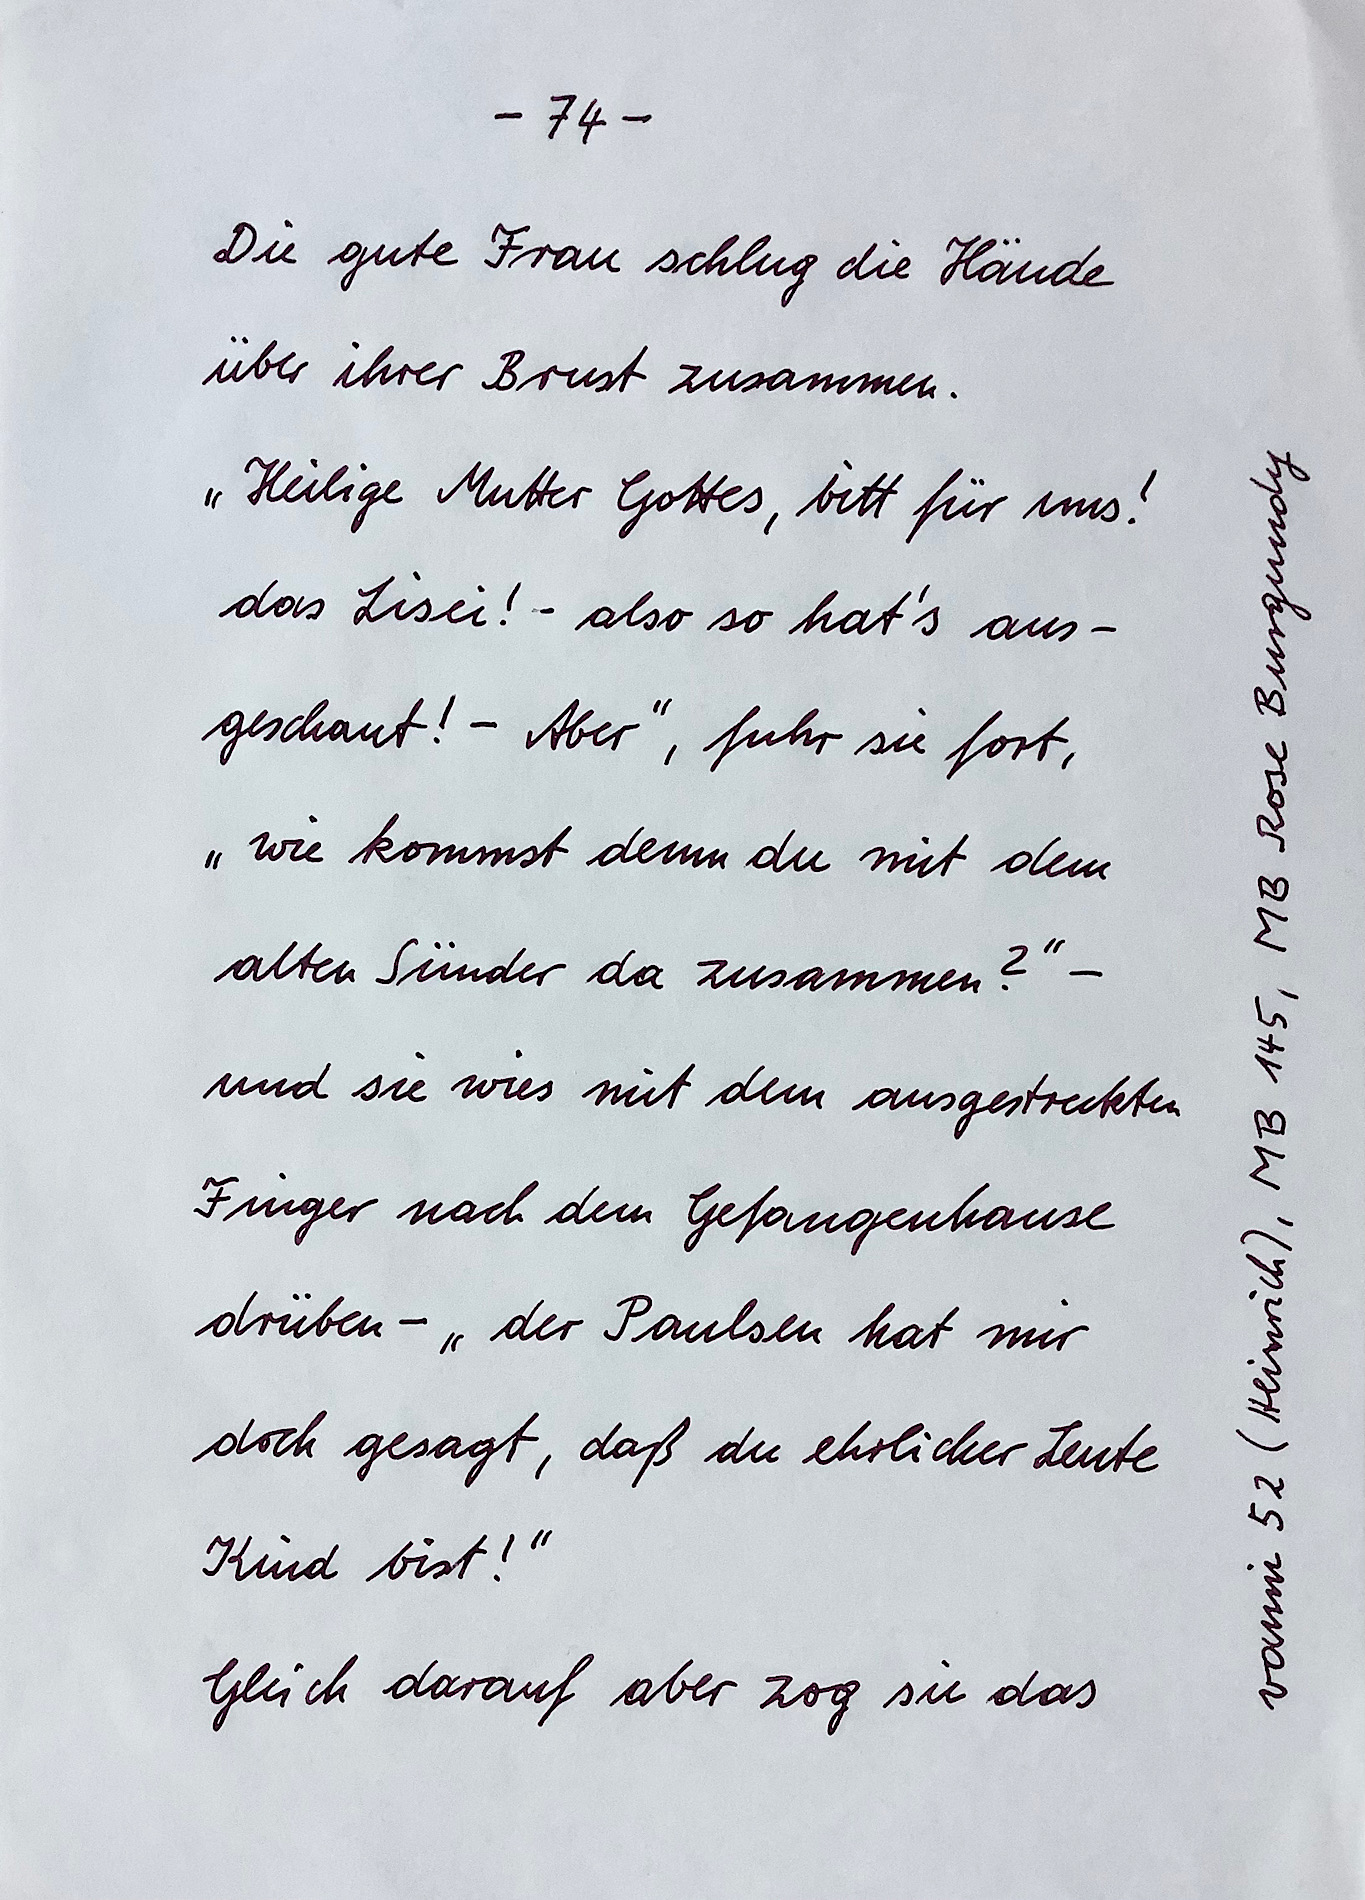 - 74 -
Die gute Frau schlug die Hände
über ihrer Brust zusammen.
„Heilige Mutter Gottes, bitt für uns!
das Lisei! - also so hat's aus-
geschaut! - Aber", fuhr sie fort,
„wie kommst denn du mit dem
alten Sünder da zusammen?" -
und sie wies mit dem ausgestreckten
Finger nach dem Gefangenhause
drüben - „der Paulsen hat mir
doch gesagt, daß du ehrlicher Leute
Kind bist!"
Gleich darauf aber zog sie das
vanni 52 (Heinrich), MB 145, MB Rose Burgundy